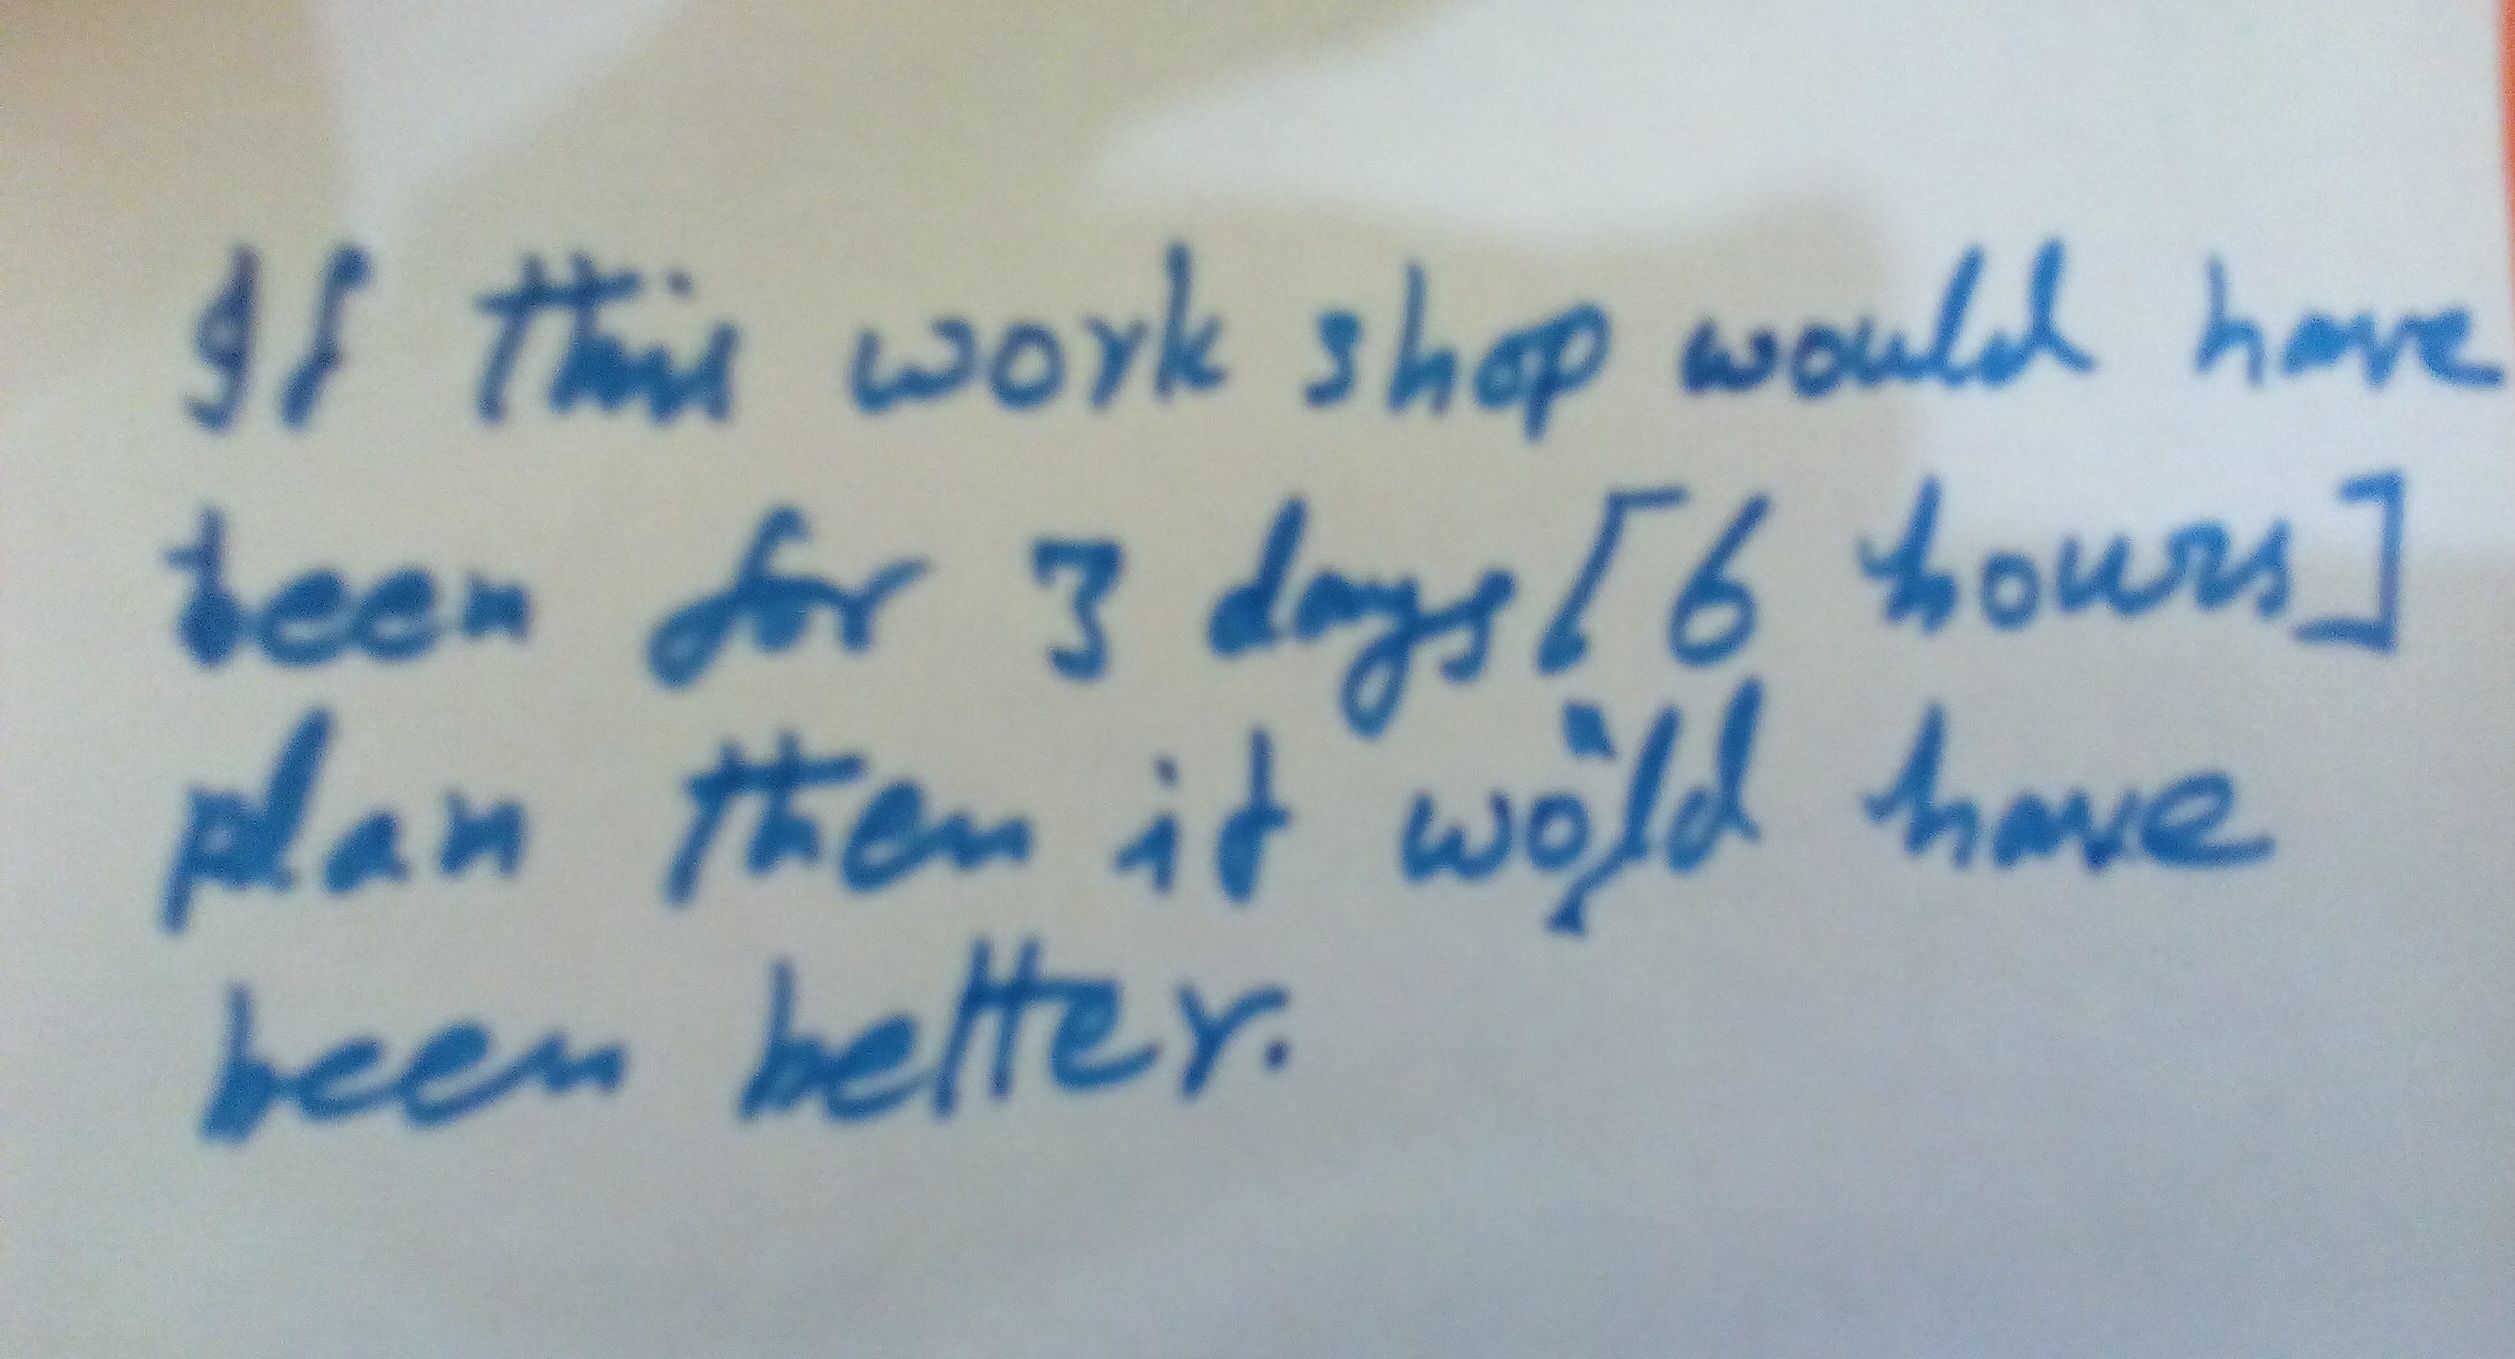 If this work shop would have
been for 3 days [6 hours]
plan then it would have
been better.